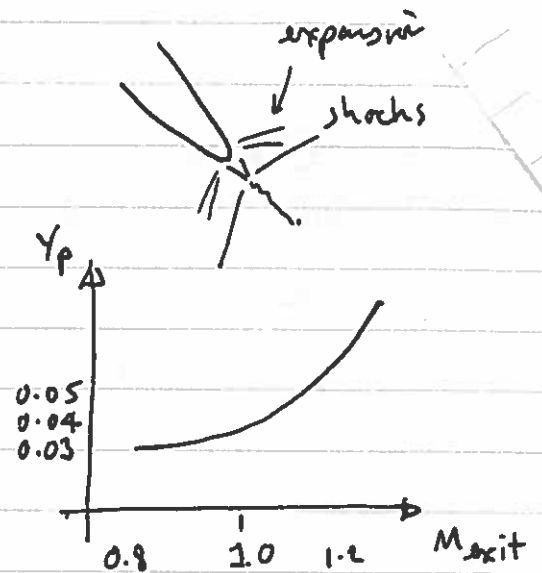 expansion
shocks
Yp
0.05
0.04
0.03
0.8 1.0 1.2 Mexit